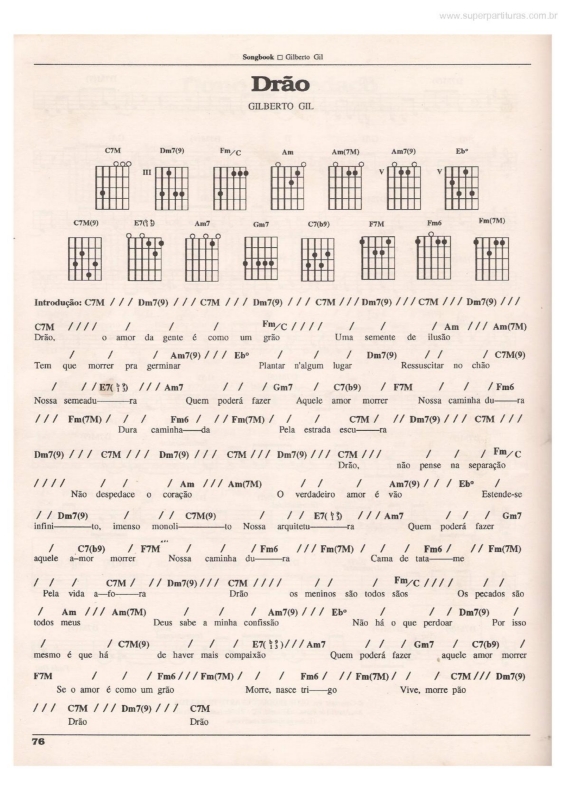 www.superpartituras.com.br
Songbook □ Gilberto Gil
Drão
GILBERTO GIL
C7M Dm7(9) Fm/C Am Am(7M) Am7(9) Eb°
III V V
C7M(9) E7(b9 13) Am7 Gm7 C7(b9) F7M Fm6 Fm(7M)
Introdução: C7M / / / Dm7(9) / / / C7M / / / Dm7(9) / / / C7M / / / Dm7(9) / / / C7M / / / Dm7(9) / / /
C7M / / / / / / / Fm/C / / / / / / / Am / / / Am(7M)
Drão, o amor da gente é como um grão Uma semente de ilusão
/ / / Am7(9) / / / Eb° / / / Dm7(9) / / / C7M(9)
Tem que morrer pra germinar Plantar n'algum lugar Ressuscitar no chão
/ / / E7(b9 13) / / / Am7 / / / Gm7 / C7(b9) / F7M / / / Fm6
Nossa semeadu——ra Quem poderá fazer Aquele amor morrer Nossa caminha du——ra
/ / / Fm(7M) / / / Fm6 / / / Fm(7M) / / / C7M / / / Dm7(9) / / / C7M / / /
Dura caminha——da Pela estrada escu——ra
Dm7(9) / / / C7M / / / Dm7(9) / / / C7M / / / Dm7(9) / / / C7M / / / / / / Fm/C
Drão, não pense na separação
/ / / / / / / Am / / / Am(7M) / / / Am7(9) / / / Eb° /
Não despedace o coração O verdadeiro amor é vão Estende-se
/ / Dm7(9) / / / C7M(9) / / / E7(b9 13) / / / Am7 / / / Gm7
infini——to, imenso monoli——to Nossa arquitetu——ra Quem poderá fazer
/ C7(b9) / F7M / / / Fm6 / / / Fm(7M) / / / Fm6 / / / Fm(7M)
aquele a-mor morrer Nossa caminha du——ra Cama de tata——me
/ / / C7M / / / Dm7(9) / / / C7M / / / / / / / Fm/C / / / / / /
Pela vida a—fo——ra Drão os meninos são todos sãos Os pecados são
/ Am / / / Am(7M) / / / Am7(9) / / / Eb° / / / Dm7(9) /
todos meus Deus sabe a minha confissão Não há o que perdoar Por isso
/ / C7M(9) / / / E7(b9 13) / / / Am7 / / / Gm7 / C7(b9) /
mesmo é que há de haver mais compaixão Quem poderá fazer aquele amor morrer
F7M / / / Fm6 / / / Fm(7M) / / / Fm6 / / / Fm(7M) / / / C7M / / / Dm7(9)
Se o amor é como um grão Morre, nasce tri——go Vive, morre pão
/ / / C7M / / / Dm7(9) / / / C7M
Drão Drão
76